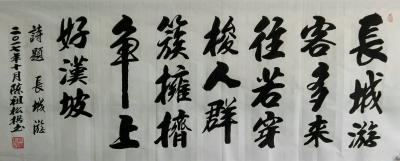 長城游
客多来
往若穿
梭人群
簇擁擠
争上
好漢坡
詩題 長城游
二〇一七年十月陳祖松